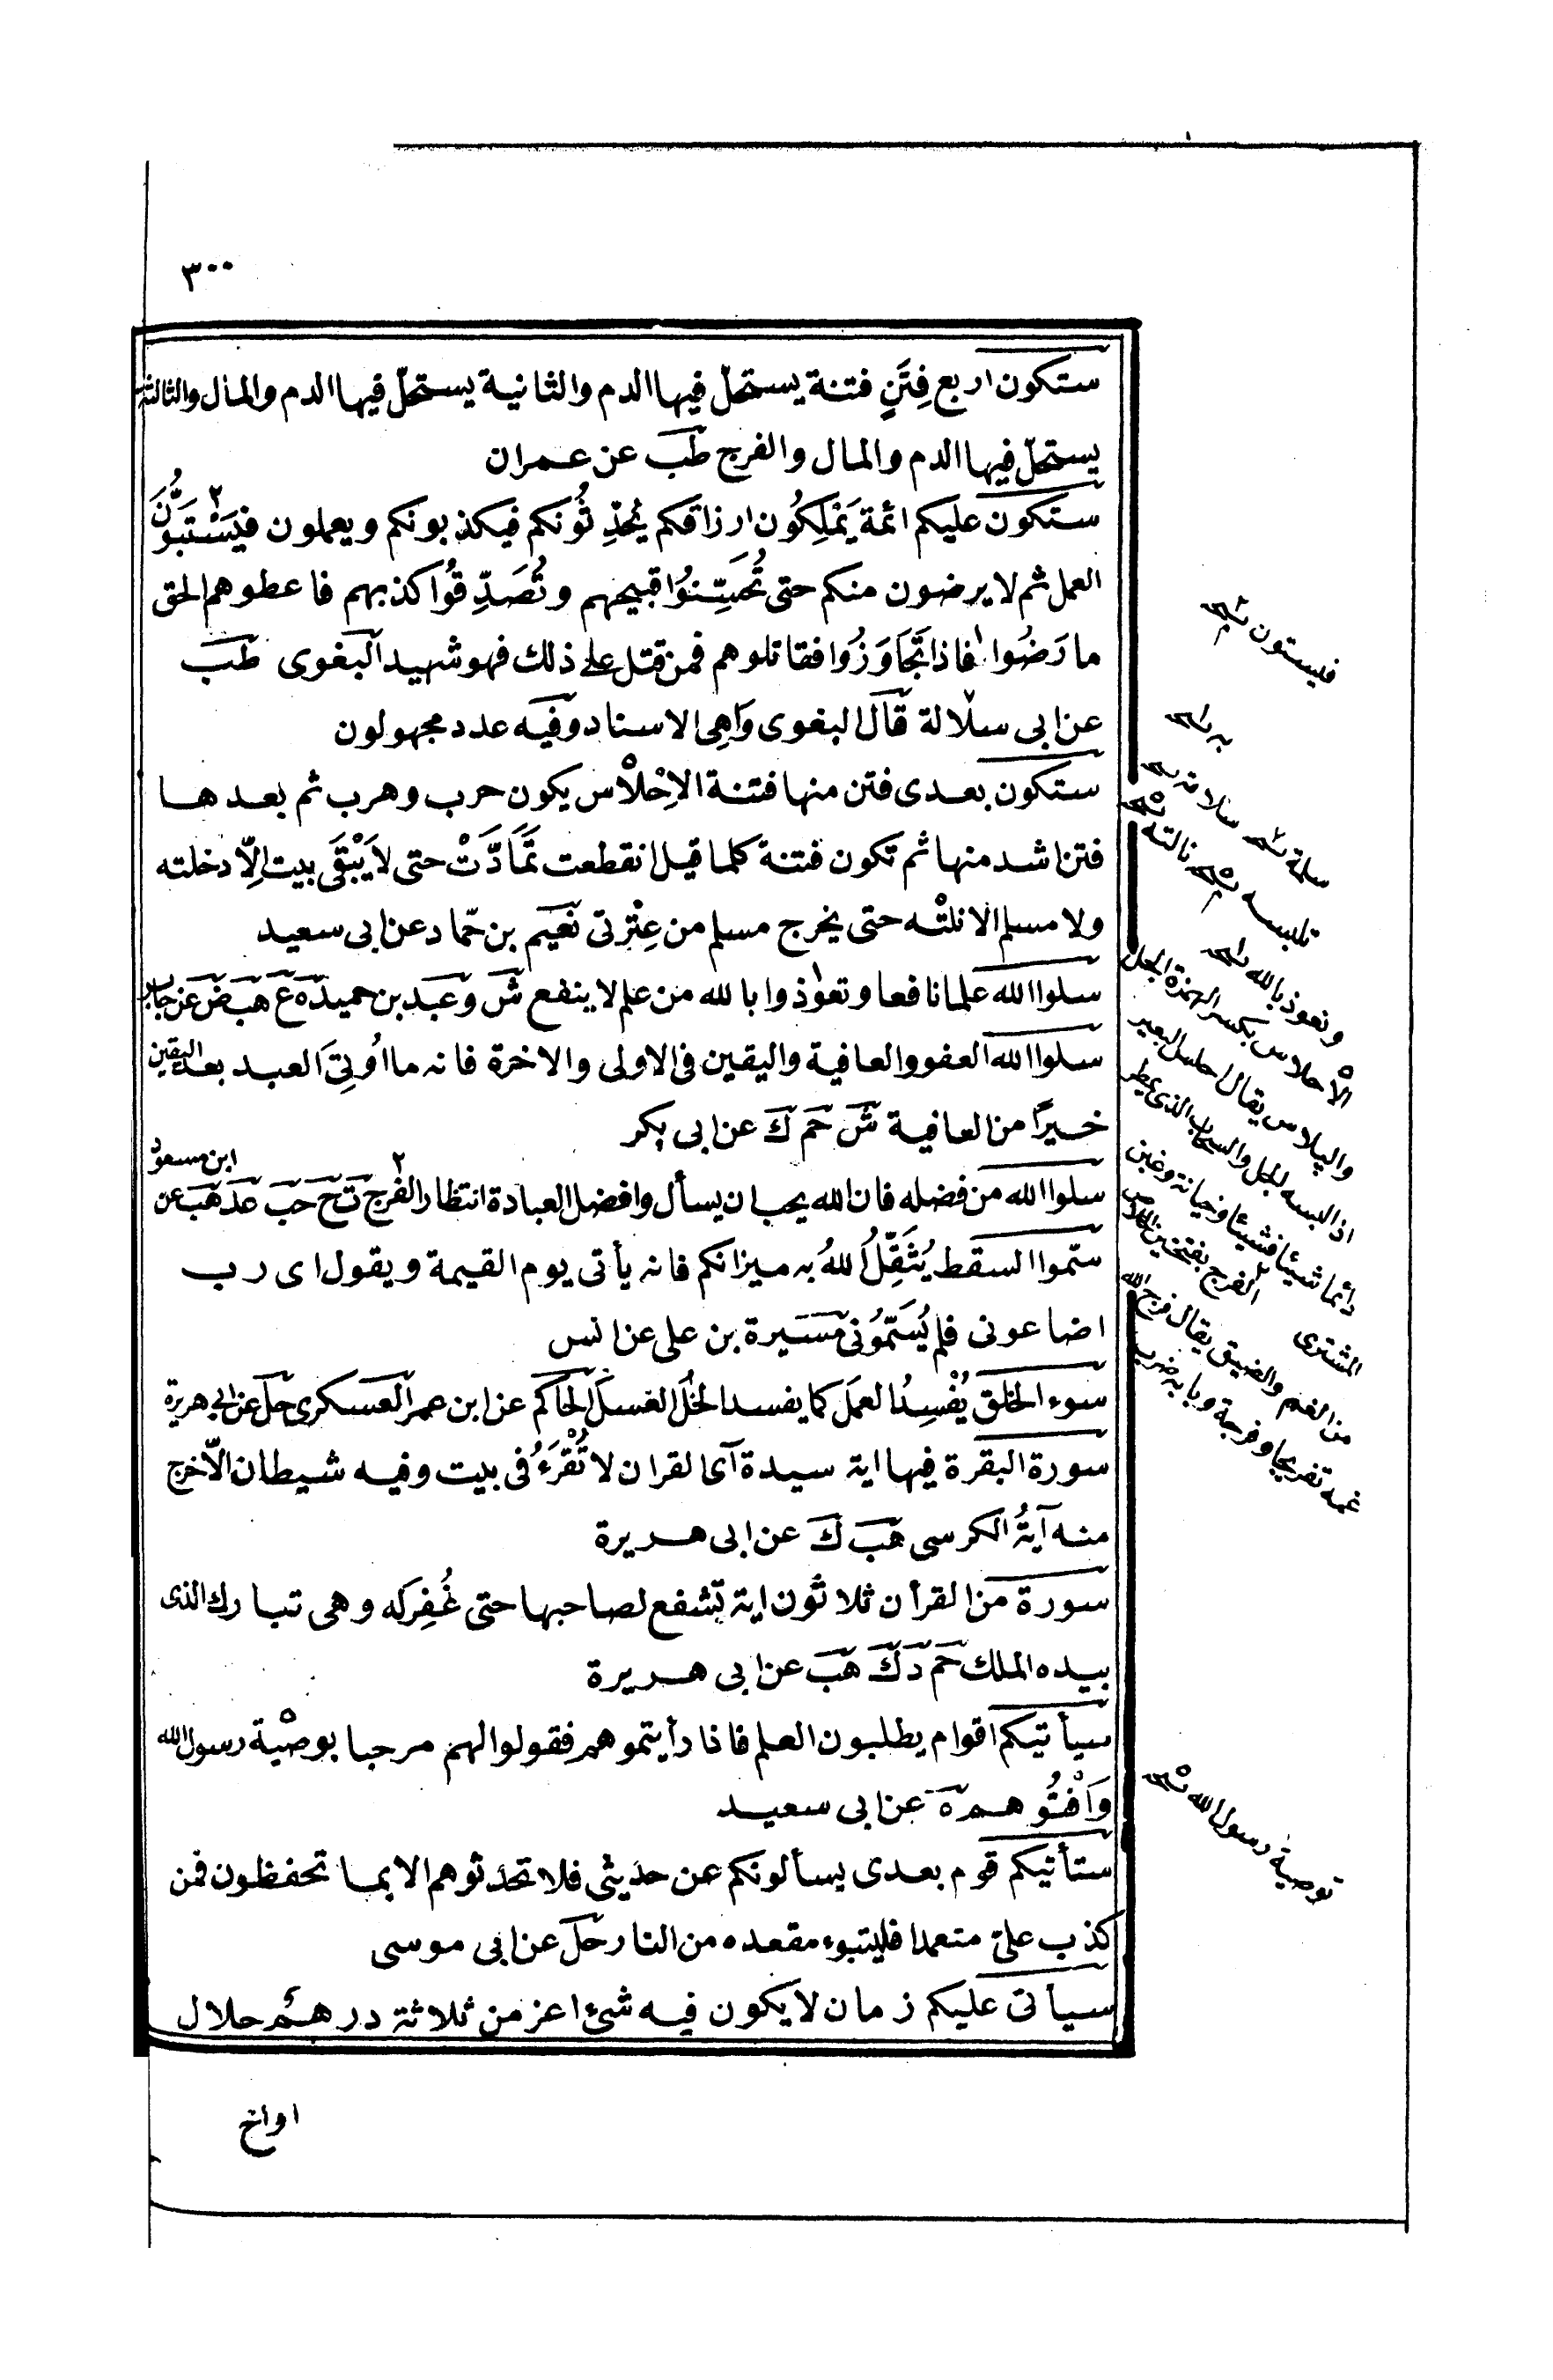 ٣٠٠
ستكون اربع فِتَنٍ فتنة يستحلّ فيها الدم والثانية يستحلّ فيها الدم والمال والثالثة
يستحلّ فيها الدم والمال والفرج طب عن عمران
ستكون عليكم ائمة يَمْلِكُون ارزاقكم يُحَدِّثُونكم فيكذبونكم ويعملون فيَسْتَبُّونَ
العمل ثم لا يرضون منكم حتى تُحَسِّنُوا قبيحهم وتُصَدِّقُوا كذبهم فاعطوهم الحق
ما رَضُوا فاذا تَجَاوَزُوا فقاتلوهم فمن قتل على ذلك فهو شهيد البغوى طب
عن ابى سلالة قال البغوى وَاهِى الاسناد وفيه عدد مجهولون
ستكون بعدى فتن منها فتنة الاِحْلاس يكون حرب وهرب ثم بعدها
فتن اشد منها ثم تكون فتنة كلما قيل انقطعت تَمَّادَّتْ حتى لا يَبْقَى بيت اِلّا دخلته
ولا مسلم الا نلتْه حتى يخرج مسلم من عِتْرتى نعيم بن حمّاد عن ابى سعيد
سلوا الله علما نافعا وتعوّذوا بالله من علم لا ينفع ش وعبد بن حميد ه ع هب ض عن جابر
سلوا الله العفو والعافية واليقين فى الاولى والاخرة فانه ما اُوتِىَ العبد بعد اليقين
خيرًا من العافية ش حم ك عن ابى بكر
سلوا الله من فضله فان الله يحب ان يسأل وافضل العبادة انتظار الفرج ت ح حب عد هب عن ابن مسعود
سمّوا السقط يُثَقِّلُ اللهُ به ميزانكم فانه يأتى يوم القيمة ويقول اى رب
اضاعونى فلم يُسَمّونى مسيرة بن على عن انس
سوء الخلق يُفْسِدُ العمَل كما يفسد الخل العسل الحاكم عن ابن عمر العسكرى حل عن ابى هريرة
سورة البقرة فيها اية سيدة آى القران لا تُقْرَءُ فى بيت وفيه شيطان الّا خرج
منه آيةُ الكرسى هب ك عن ابى هريرة
سورة من القرأن ثلاثون اية تشفع لصاحبها حتى غُفِر له وهى تبارك الذى
بيده الملك حم د ك هب عن ابى هريرة
سيأتيكم اقوام يطلبون العلم فاذا رأيتموهم فقولوا لهم مرحبا بوصيْة رسول الله
وَاَفْتُوهم ه عن ابى سعيد
ستأتيكم قوم بعدى يسألونكم عن حديثى فلا تحدثوهم الا بما تحفظون فمن
كذب علىّ متعمدا فليتبوء مقعده من النار حل عن ابى موسى
سيأتى عليكم زمان لا يكون فيه شئ اعز من ثلاثة درهم حلال
اواخ
فليستون
به
سلمة سلامة
تلبسه نالته
ونعوذ بالله
الاحلاس بكسر الهمزة
والپلاس يقال احلس البعير
اذا البسه الحبل والسحاب الذى يمطر
دائما شيئا فشيئا وخيانة وغبن
المشترى
الفرج بفتحتين الخلاص
من الغم والضيق يقال فرج الله
غمه تفريجا وفرجة وبابه ضرب
توصية رسول الله